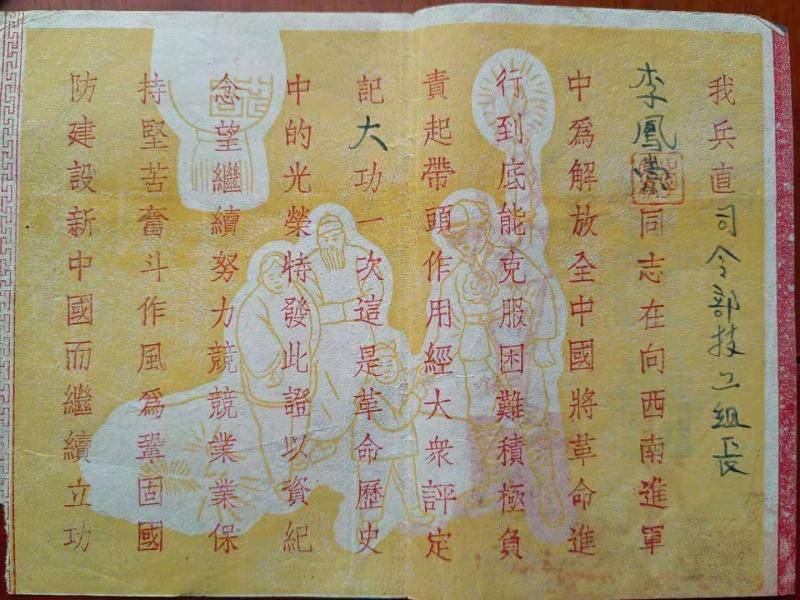 我兵直司令部技工組長
李鳳同志在向西南進軍
中爲解放全中國將革命進
行到底能克服困難積極負
責起帶頭作用經大衆評定
記大功一次這是革命歷史
中的光榮特發此證以資紀
念望繼續努力競競業業保
持堅苦奮斗作風爲鞏固國
防建設新中國而繼續立功